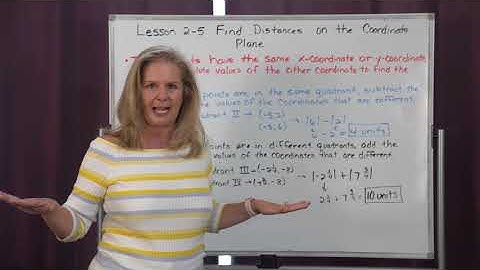 Lesson 2-5 Find Distances on the Coordinate
Plane
have the same x-coordinate or y-coordinate,
values of the other coordinate to find the
points are in the same quadrant, subtract the
values of the coordinates that are different.
II → (-5,2) → |6| - |2|
(-5,6) 6 - 2 = 4 units
are in different quadrants, add the
values of the coordinates that are different
III → (-2¼,-8) → |-2¼| + |7¾|
IV → (7¾,-8) 2¼ + 7¾ = 10 units